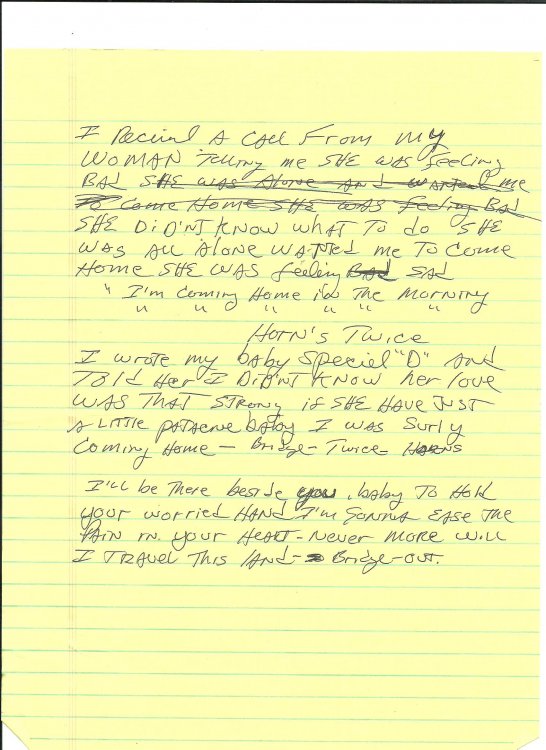 I Recived A Call From my
WOMAN Telling me SHE WAS feeling
BAD SHE WAS Alone AND WANTED me
To Come Home SHE WAS feeling BAD
SHE DIDN'T KNOW WHAT TO do SHE
WAS ALL Alone WANTED me To Come
Home SHE WAS feeling BAD SAD
" I'm Coming Home in The Morning
" " " " " "
HORN'S Twice
I wrote my baby Special "D" AND
TOLD Her I DIDN'T KNOW her love
WAS THAT STRONG if SHE HAVE JUST
A LITTLE PATAENE baby I WAS Surly
Coming Home - Bridge - Twice - HORNS
I'll be There beside you, baby To Hold
your worried HAND I'm Gonna EASE THE
PAIN in your HEART - Never More Will
I TRAVEL THIS LAND - Bridge-out.